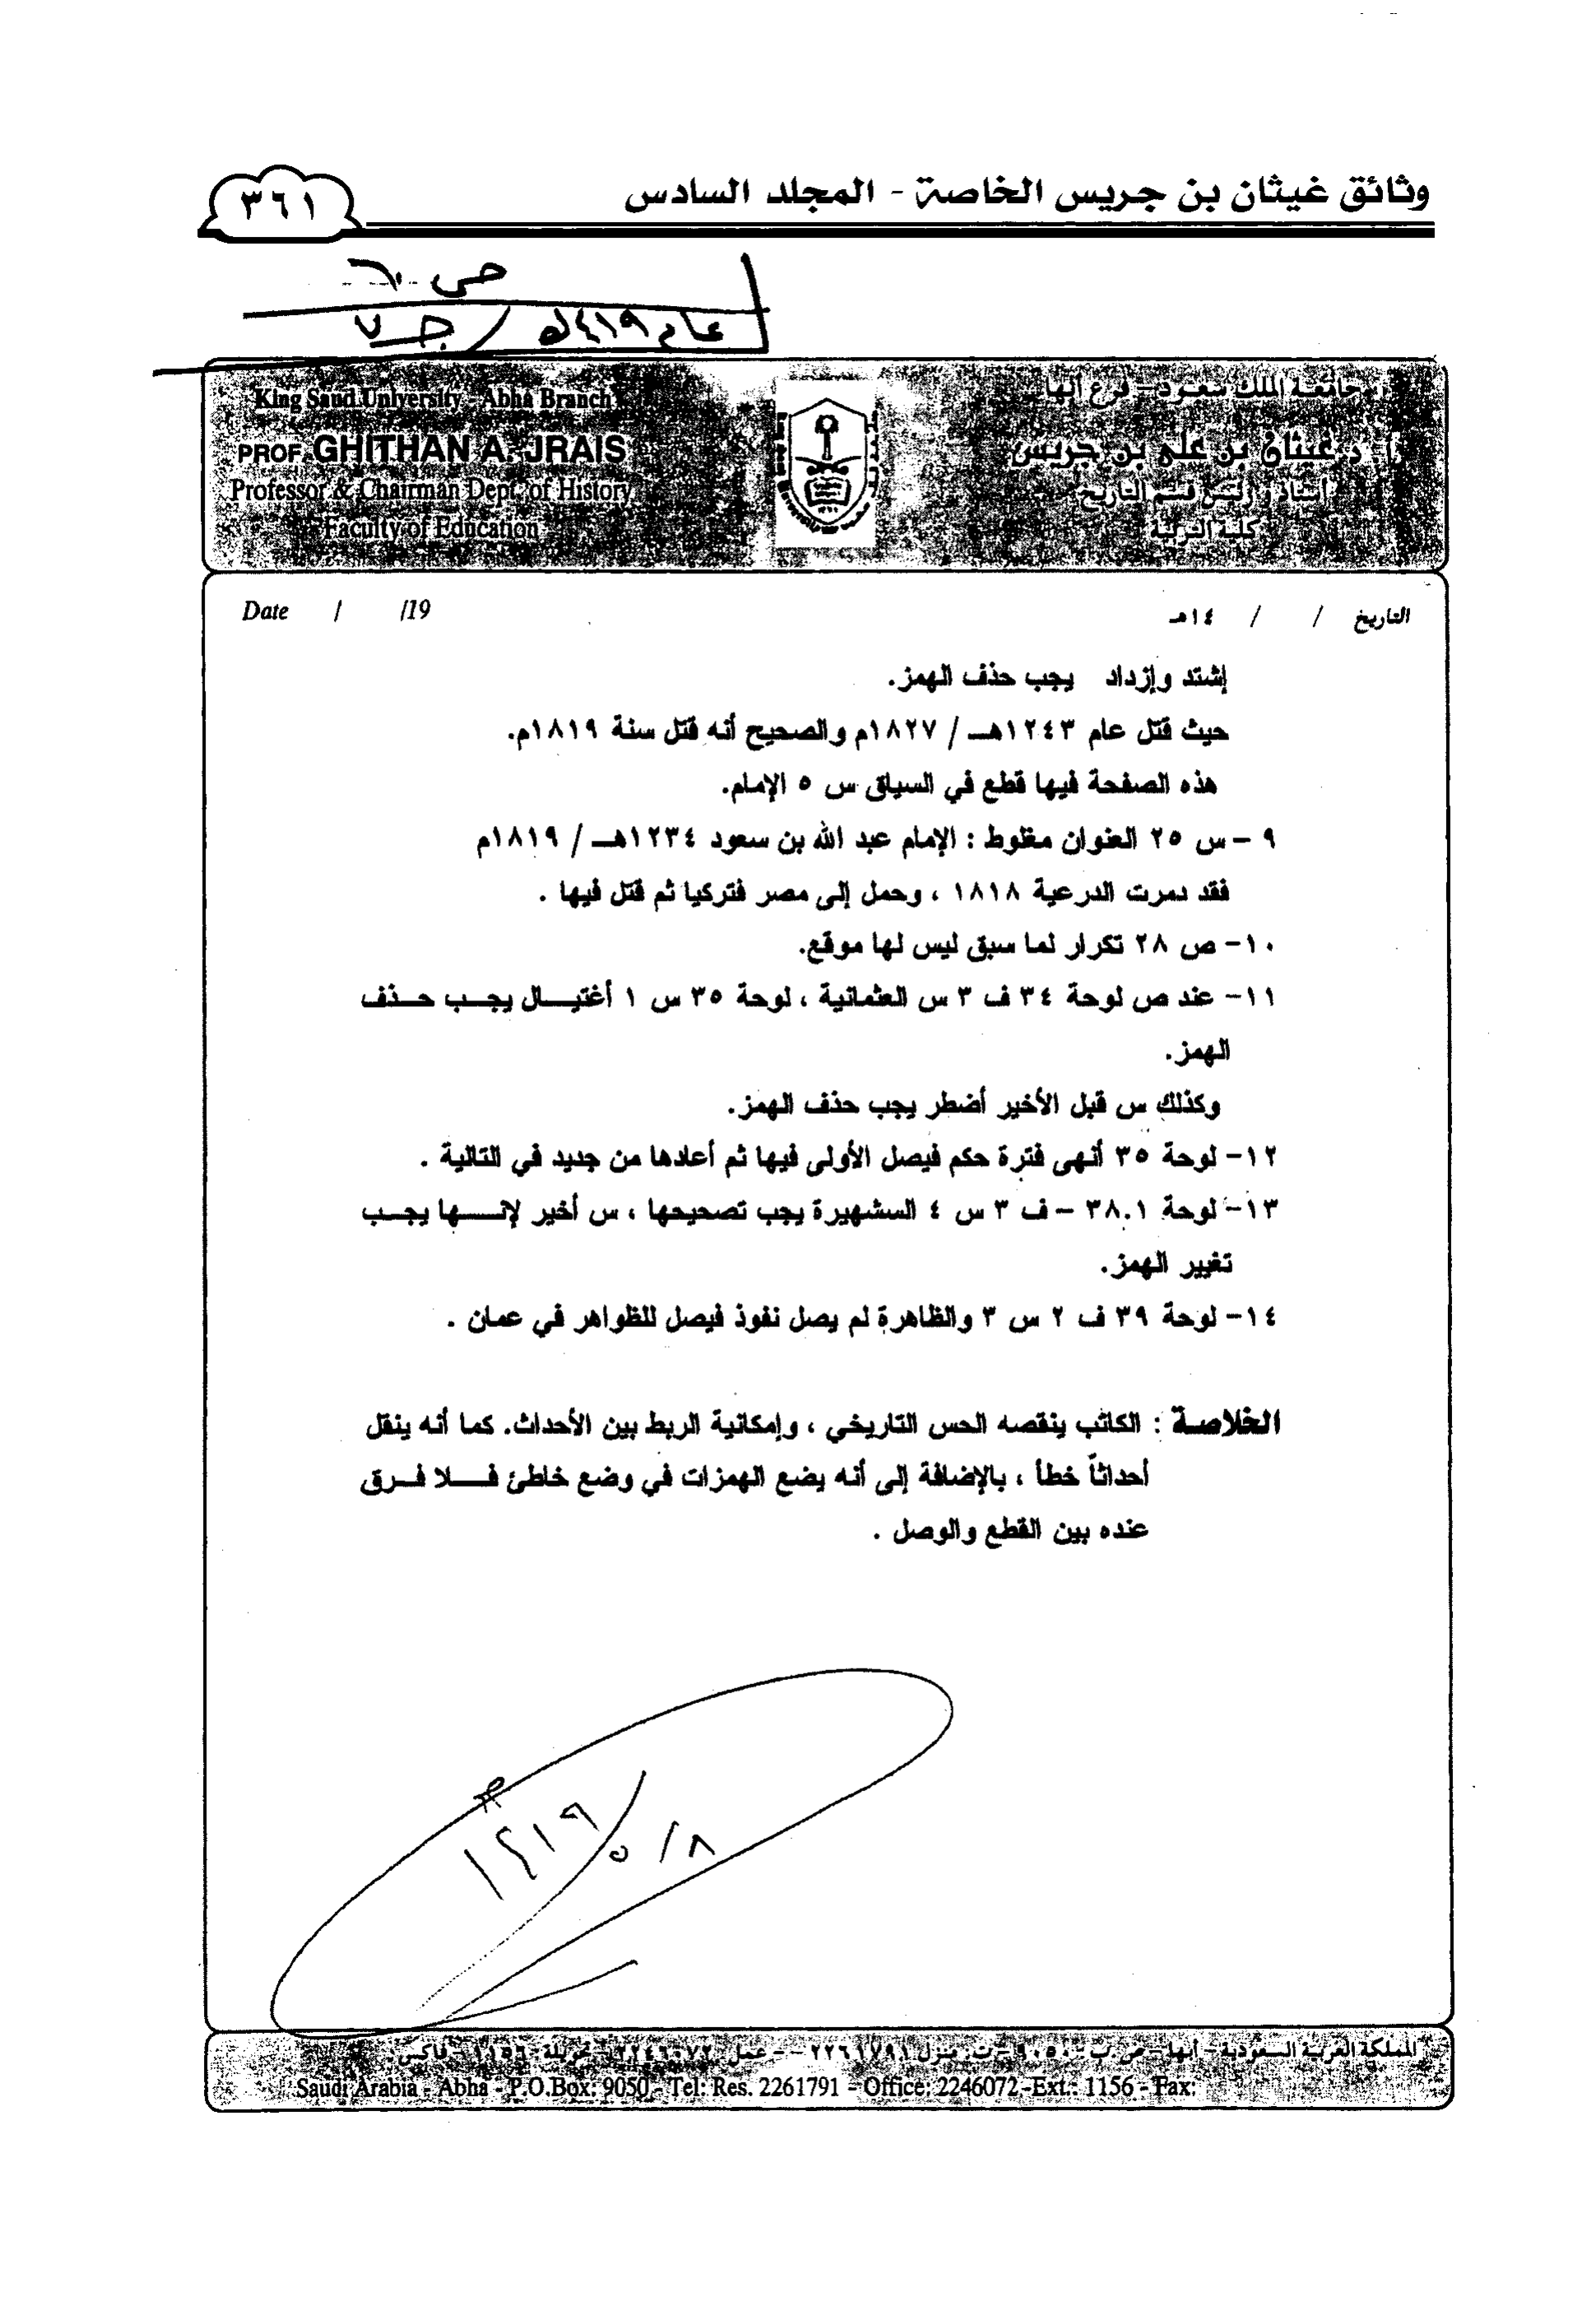 وثائق غيثان بن جريس الخاصة - المجلد السادس
٣٦١
ص ٦٠
عام ١٤١٩هـ / جـ ٧
King Saud University - Abha Branch
PROF. GHITHAN A. JRAIS
Professor & Chairman Dept. of History
Faculty of Education
جامعة الملك سعود - فرع أبها
أ.د. غيثان بن علي بن جريس
أستاذ ورئيس قسم التاريخ
كلية التربية
Date / /19
التاريخ / / ١٤هـ
إشتد وإزداد يجب حذف الهمز.
حيث قتل عام ١٢٤٣هـ / ١٨٢٧م والصحيح أنه قتل سنة ١٨١٩م.
هذه الصفحة فيها قطع في السياق س ٥ الإمام.
٩ - س ٢٥ العنوان مغلوط : الإمام عبد الله بن سعود ١٢٣٤هـ / ١٨١٩م
فقد دمرت الدرعية ١٨١٨ ، وحمل إلى مصر فتركيا ثم قتل فيها .
١٠- ص ٢٨ تكرار لما سبق ليس لها موقع.
١١- عند ص لوحة ٣٤ ف ٣ س العثمانية ، لوحة ٣٥ س ١ أغتيال يجب حذف
الهمز.
وكذلك س قبل الأخير أضطر يجب حذف الهمز.
١٢- لوحة ٣٥ أنهى فترة حكم فيصل الأولى فيها ثم أعادها من جديد في التالية .
١٣- لوحة ٣٨.١ - ف ٣ س ٤ السشهيرة يجب تصحيحها ، س أخير لإنها يجب
تغيير الهمز.
١٤- لوحة ٣٩ ف ٢ س ٣ والظاهرة لم يصل نفوذ فيصل للظواهر في عمان .
الخلاصة : الكاتب ينقصه الحس التاريخي ، وإمكانية الربط بين الأحداث. كما أنه ينقل
أحداثاً خطأ ، بالإضافة إلى أنه يضع الهمزات في وضع خاطئ فلا فرق
عنده بين القطع والوصل .
٨/٥/١٤١٩هـ
المملكة العربية السعودية - أبها - ص.ب ٩٠٥٠ - ت. منزل ٢٢٦١٧٩١ - عمل ٢٢٤٦٠٧٢ تحويلة ١١٥٦ - فاكس:
Saudi Arabia - Abha - P.O.Box: 9050 - Tel: Res. 2261791 - Office: 2246072 -Ext.: 1156 - Fax: